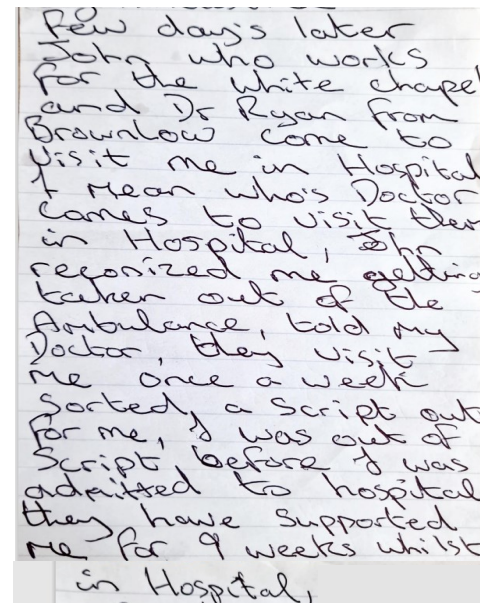 few days later
John who works
for the white chapel
and Dr Ryan from
Brownlow come to
visit me in Hospital
I mean who's Doctor
comes to visit them
in Hospital, John
reconized me getting
taken out of the
Ambulance, told my
Doctor, they visit
me once a week
sorted, a script out
for me, I was out of
script before I was
admitted to hospital
they have supported
me for 9 weeks whilst
in Hospital,